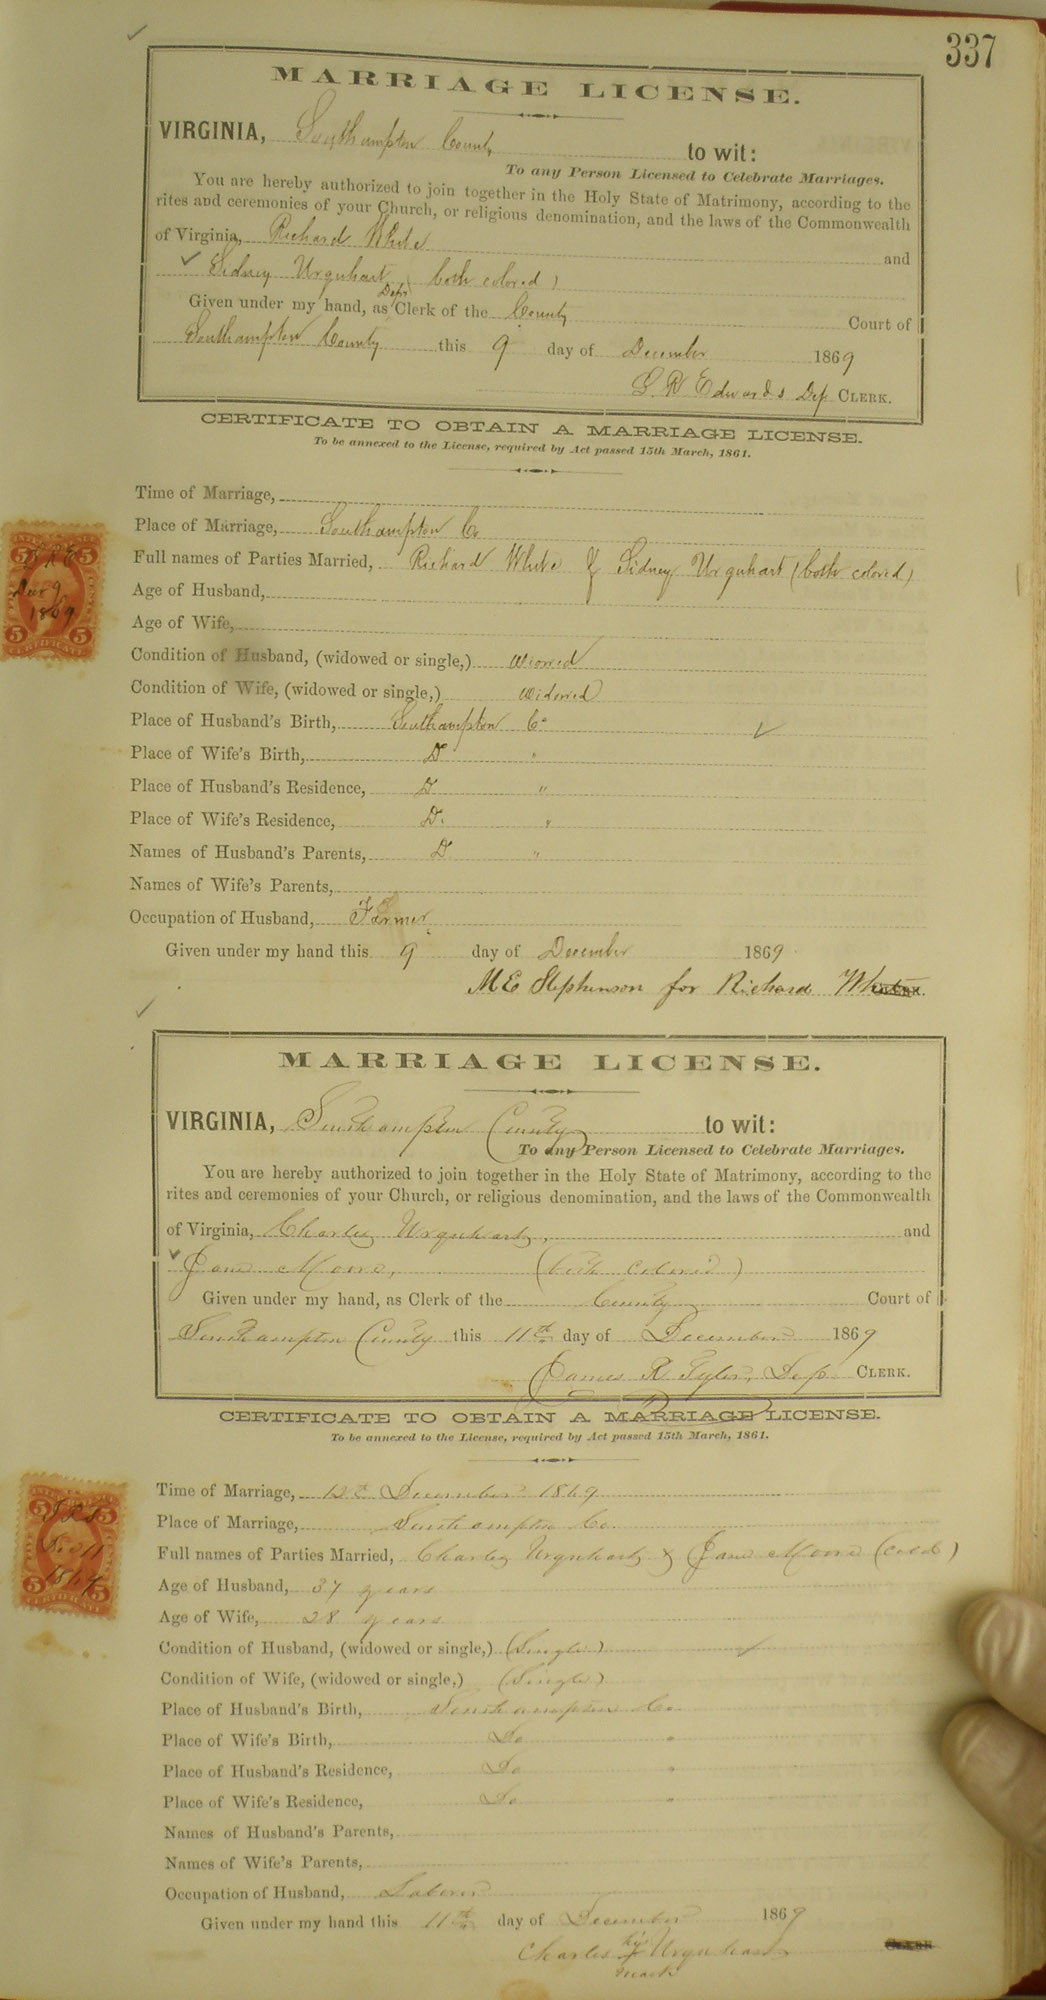 337
MARRIAGE LICENSE.
VIRGINIA, Southampton County to wit:
To any Person Licensed to Celebrate Marriages.
You are hereby authorized to join together in the Holy State of Matrimony, according to the
rites and ceremonies of your Church, or religious denomination, and the laws of the Commonwealth
of Virginia, Richard White and
Sidney Urquhart (both colored)
Given under my hand, as Depy Clerk of the County Court of
Southampton County this 9 day of December 1869
S. R Edwards Dep CLERK.
CERTIFICATE TO OBTAIN A MARRIAGE LICENSE.
To be annexed to the License, required by Act passed 15th March, 1861.
Time of Marriage,
Place of Marriage, Southampton Co
Full names of Parties Married, Richard White & Sidney Urquhart (both colored)
Age of Husband,
Age of Wife,
Condition of Husband, (widowed or single,)
Condition of Wife, (widowed or single,) widowed
Place of Husband's Birth, Southampton Co
Place of Wife's Birth, D "
Place of Husband's Residence, D "
Place of Wife's Residence, D. "
Names of Husband's Parents, D "
Names of Wife's Parents,
Occupation of Husband, Farmer
Given under my hand this 9 day of December 1869
M E Stephenson for Richard White
5 5
S R E
Dec 9
1869
5 5
CERTIFICATE
MARRIAGE LICENSE.
VIRGINIA, Southampton County to wit:
To any Person Licensed to Celebrate Marriages.
You are hereby authorized to join together in the Holy State of Matrimony, according to the
rites and ceremonies of your Church, or religious denomination, and the laws of the Commonwealth
of Virginia, Charles Urquhart, and
Jane Moore, (both colored)
Given under my hand, as Clerk of the County Court of
Southampton County this 11th day of December 1869
James R Tyler, Dep CLERK.
CERTIFICATE TO OBTAIN A MARRIAGE LICENSE.
To be annexed to the License, required by Act passed 15th March, 1861.
Time of Marriage, 12th December 1869
Place of Marriage, Southampton Co.
Full names of Parties Married, Charles Urquhart & Jane Moore (cold)
Age of Husband, 37 years
Age of Wife, 28 years
Condition of Husband, (widowed or single,) (Single)
Condition of Wife, (widowed or single,) (Single)
Place of Husband's Birth, Southampton Co.
Place of Wife's Birth, Do "
Place of Husband's Residence, Do "
Place of Wife's Residence, Do "
Names of Husband's Parents,
Names of Wife's Parents,
Occupation of Husband, Laborer
Given under my hand this 11th day of December 1869
Charles his Urquhart CLERK
mark
5 5
Dec 11
1869
5 5
CERTIFICATE